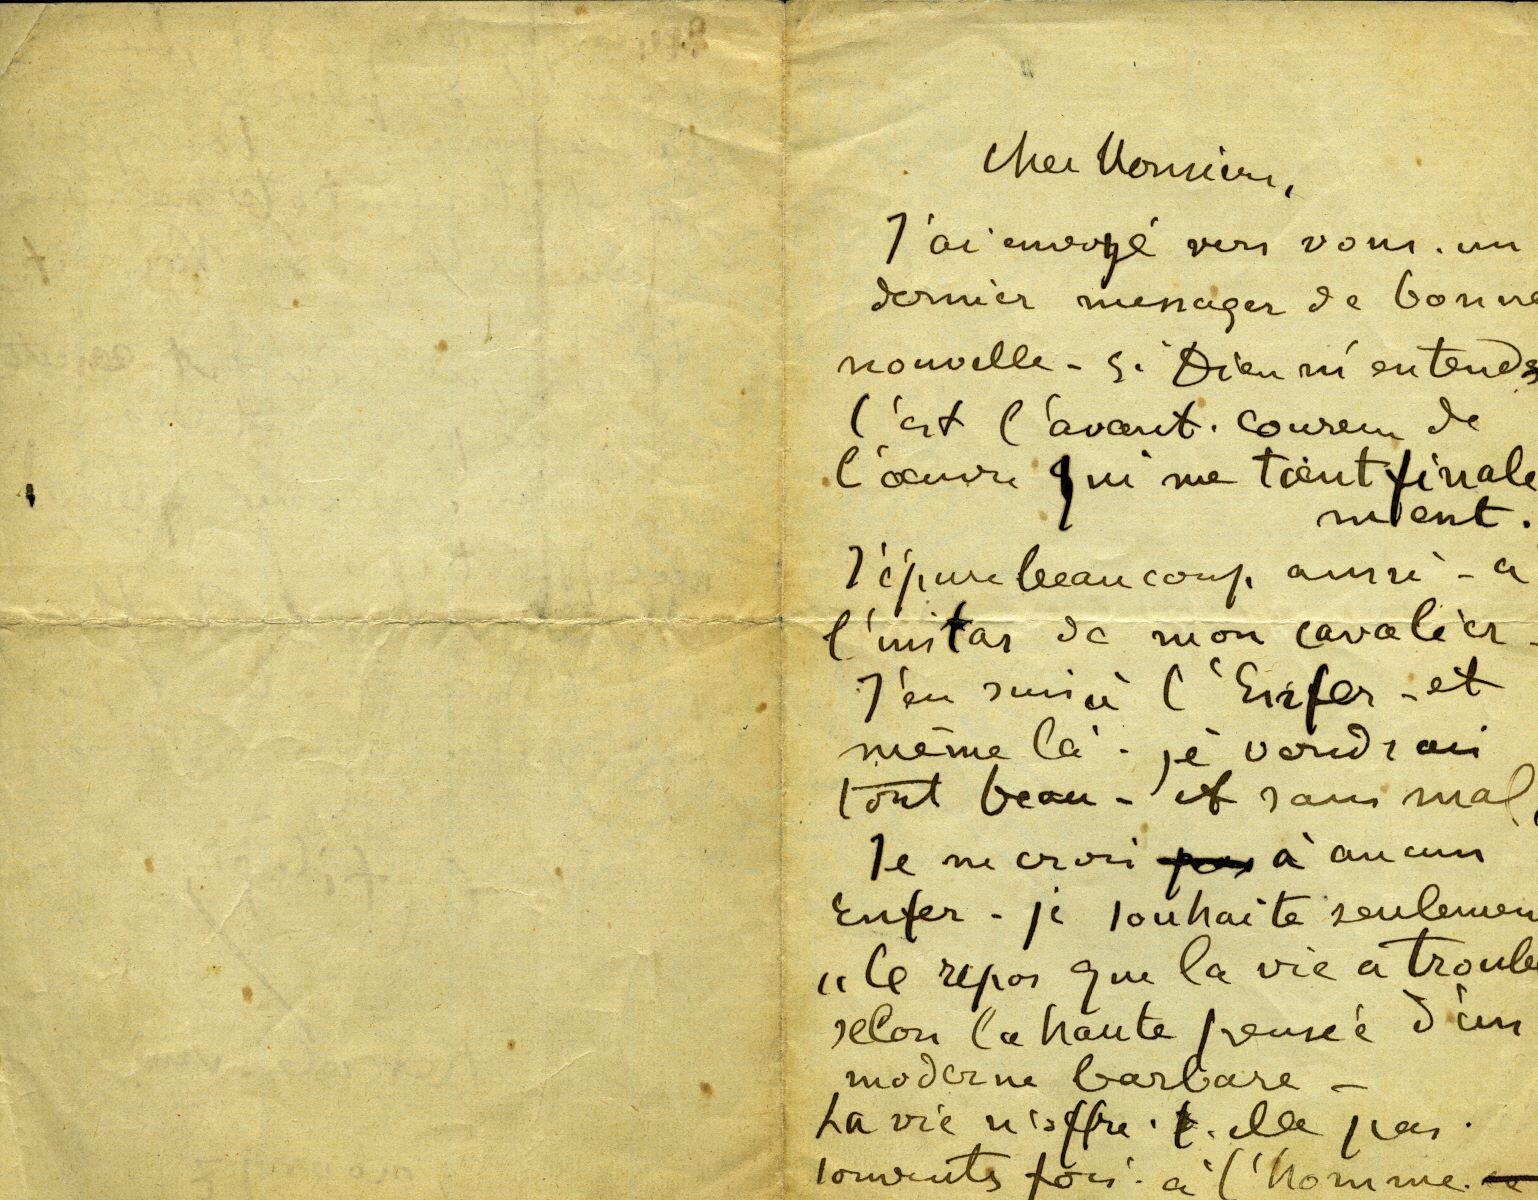 Cher Monsieur,
J'ai envoyé vers vous. un
dernier messager de bonne
nouvelle - Si Dieu m'entends
C'est l'avant-coureur de
l'œuvre qui me tient finale
ment.
J'épure beaucoup aussi - a
l'instar de mon cavalier -
J'en suis à l'Enfer - et
même là - je voudrais
tout beau - et sans mal,
Je ne crois pas à aucun
Enfer - je souhaite seulemen
"le repos que la vie a trouble
selon la haute pensée d'un
moderne barbare -
La vie n'offre-t-elle pas
souvents fois à l'homme